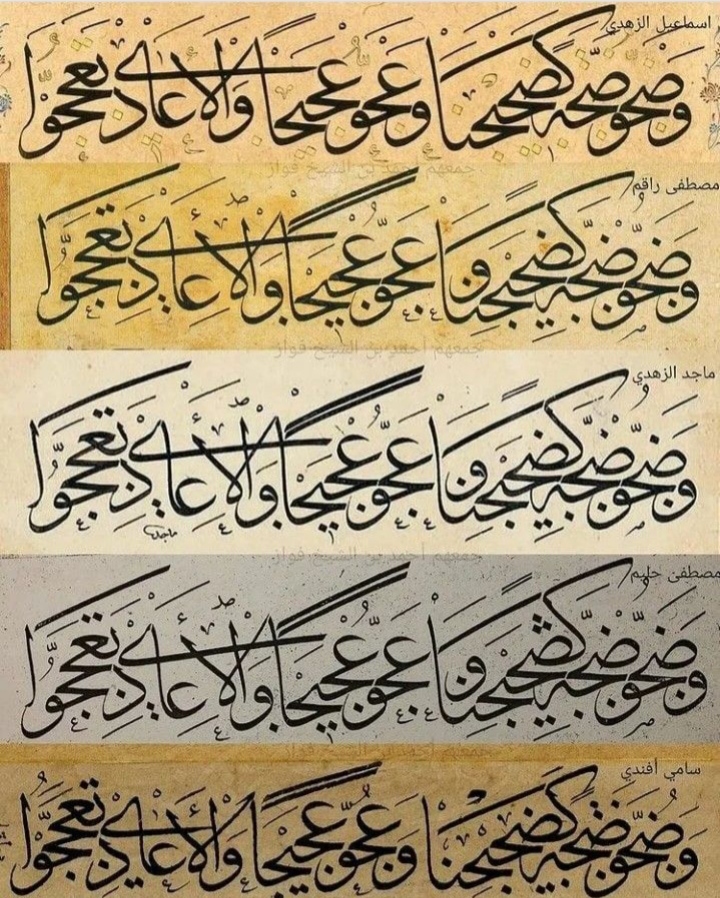 اسماعيل الزهدي
وضجو ضجة كضجيجنا وعجو عجيجا والاعادي تعجوا
جمعهم أحمد بن الشيخ فواز
مصطفى راقم
وضجو ضجة كضجيجنا وعجو عجيجا والأعادي تعجوا
جمعهم أحمد بن الشيخ فواز
ماجد الزهدي
وضجو ضجة كضجيجنا وعجو عجيجا والأعادي تعجوا
ماجد
جمعهم أحمد بن الشيخ فواز
مصطفى حليم
وضجو ضجة كضجيجنا وعجو عجيجا والأعادي تعجوا
جمعهم أحمد بن الشيخ فواز
سامي أفندي
وضجو ضجة كضجيجنا وعجو عجيجا والاعادي تعجوا